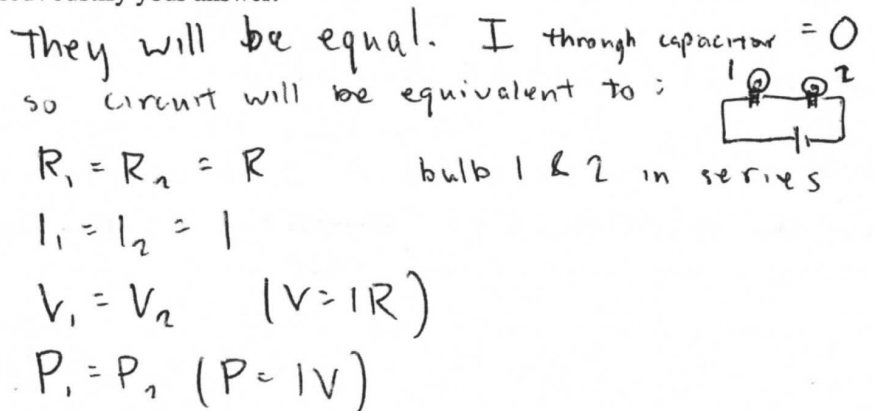 They will be equal. I through capacitor = 0
so circuit will be equivalent to :
1 2
R₁ = R₂ = R
bulb 1 & 2 in series
I₁ = I₂ = I
V₁ = V₂ (V = IR)
P₁ = P₂ (P = IV)